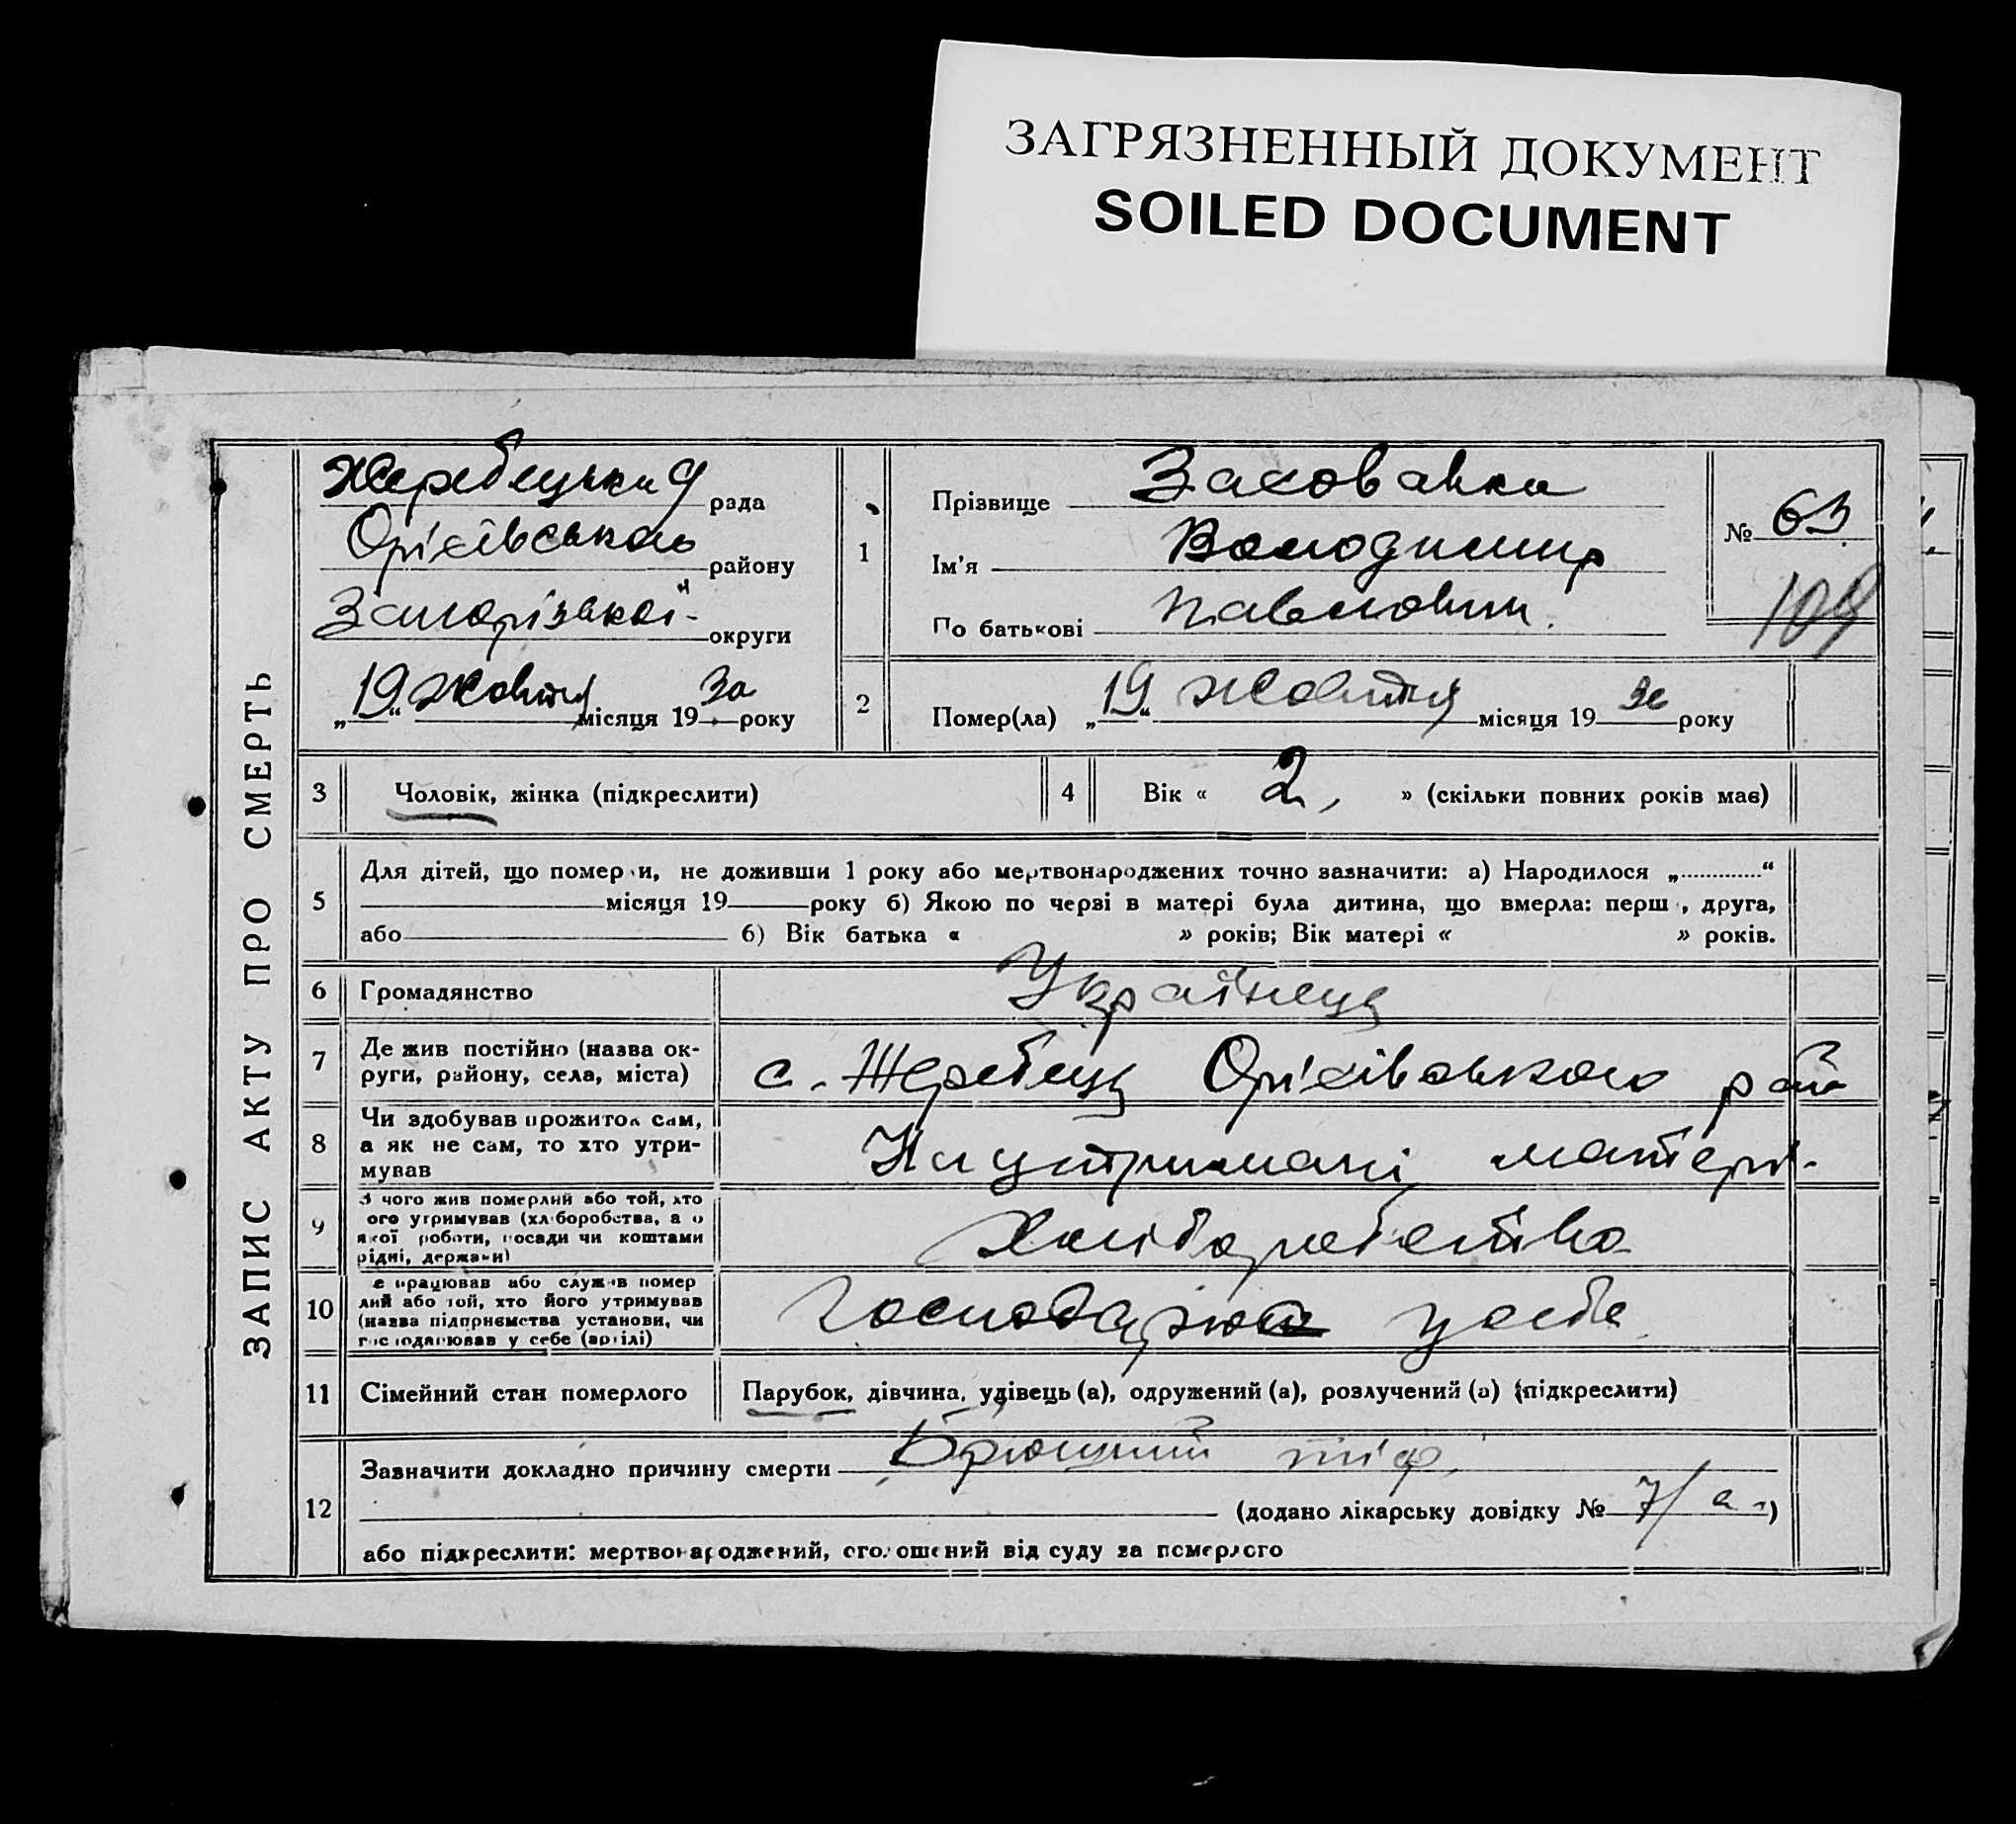 ЗАГРЯЗНЕННЫЙ ДОКУМЕНТ
SOILED DOCUMENT
ЗАПИС АКТУ ПРО СМЕРТЬ
рада
Оріхівського району
Запорізької округи
„19“ жовтня місяця 1930 року
1
Прізвище Захованка
Ім'я Володимир
По батькові Павлович.
№ 63.
109
2 Помер(ла) „19“ жовтня місяця 1930 року
3 Чоловік, жінка (підкреслити)
4 Вік « 2, » (скільки повних років має)
5 Для дітей, що померли, не доживши 1 року або мертвонароджених точно зазначити: а) Народилося „............“
місяця 19 року б) Якою по черзі в матері була дитина, що вмерла: перш, друга,
або 6) Вік батька « » років; Вік матері « » років.
6 Громадянство Українець
7 Де жив постійно (назва округи, району, села, міста)
с. Жеребець Оріхівського рай
8 Чи здобував прожиток сам,
а як не сам, то хто утри-
мував
На утриманні матері.
9 З чого жив померлий або той, хто
ого утримував (хліборобства, а о
якої роботи, посади чи коштами
рідні, держави)
Хліборобство
10 е працював або служив помер
лий або той, хто його утримував
(назва підприємства установи, чи
господарював у себе (артілі)
у себе
11 Сімейний стан померлого Парубок, дівчина, удівець (а), одружений (а), розлучений (а) (підкреслити)
12 Зазначити докладно причину смерти Брюшний тіф.
(додано лікарську довідку № 7/а)
або підкреслити: мертвонароджений, оголошений від суду за померлого